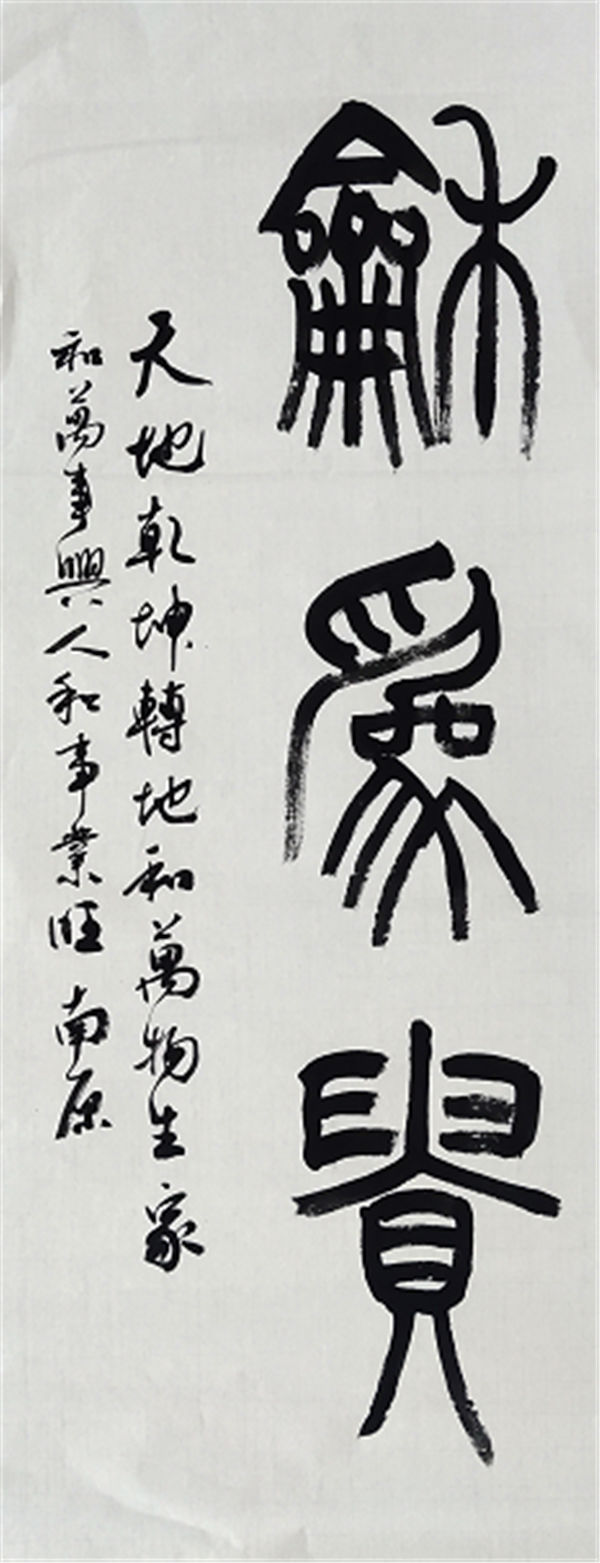 龢為貴
天地乾坤轉地和萬物生家
和萬事興人和事業旺 南原